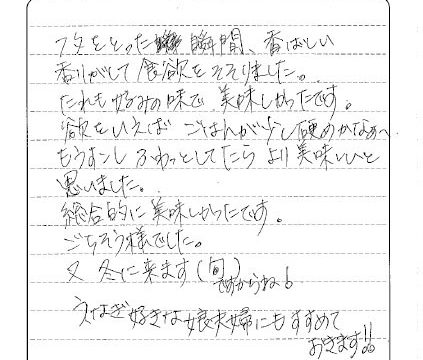 フタをとった瞬間、香ばしい
香りがして食欲をそそりました。
たれも好みの味で美味しかったです。
欲をいえばごはんが少し硬めかなぁへ
もう少しふわっとしてたらより美味しいと
思いました。
総合的に美味しかったです。
ごちそう様でした。
又冬に来ます(旬)
ですからね!
うなぎ好きな娘夫婦にもすすめて
おきます!!